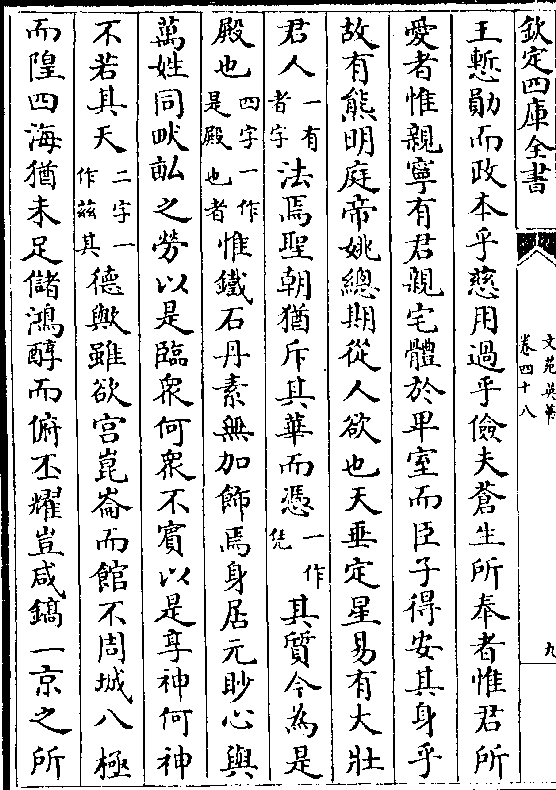 欽定四庫全書
文苑英華
卷四十八
九
王慙勛而政本乎慈用過乎儉夫蒼生所奉者惟君所
愛者惟親寧有君親宅體於卑室而臣子得安其身乎
故有熊明庭帝姚總期從人欲也天垂定星易有大壯
君人一有者字法焉聖朝猶斥其華而憑一作凭其質今為是
殿也四字一作是殿也者惟鐵石丹素無加飾焉身居元眇心與
萬姓同畎畝之勞以是臨衆何衆不賓以是享神何神
不若其天二字一作兹其德歟雖欲宫崑崙而館不周城八極
而隍四海猶未足儲鴻醇而俯丕耀豈咸鎬一京之所